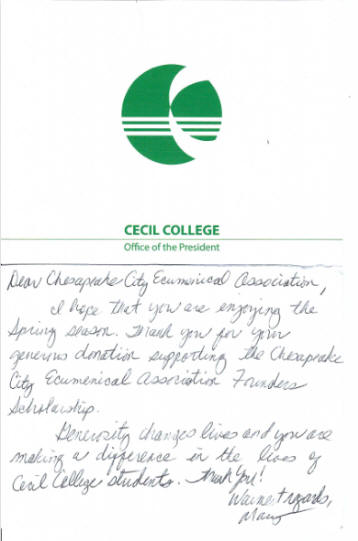 CECIL COLLEGE
Office of the President
Dear Chesapeake City Ecumenical Association,
I hope that you are enjoying the
Spring season. Thank you for your
generous donation supporting the Chesapeake
City Ecumenical Association Founders
Scholarship.
Generosity changes lives and you are
making a difference in the lives of
Cecil College students. Thank You!
Warmest regards,
Mary